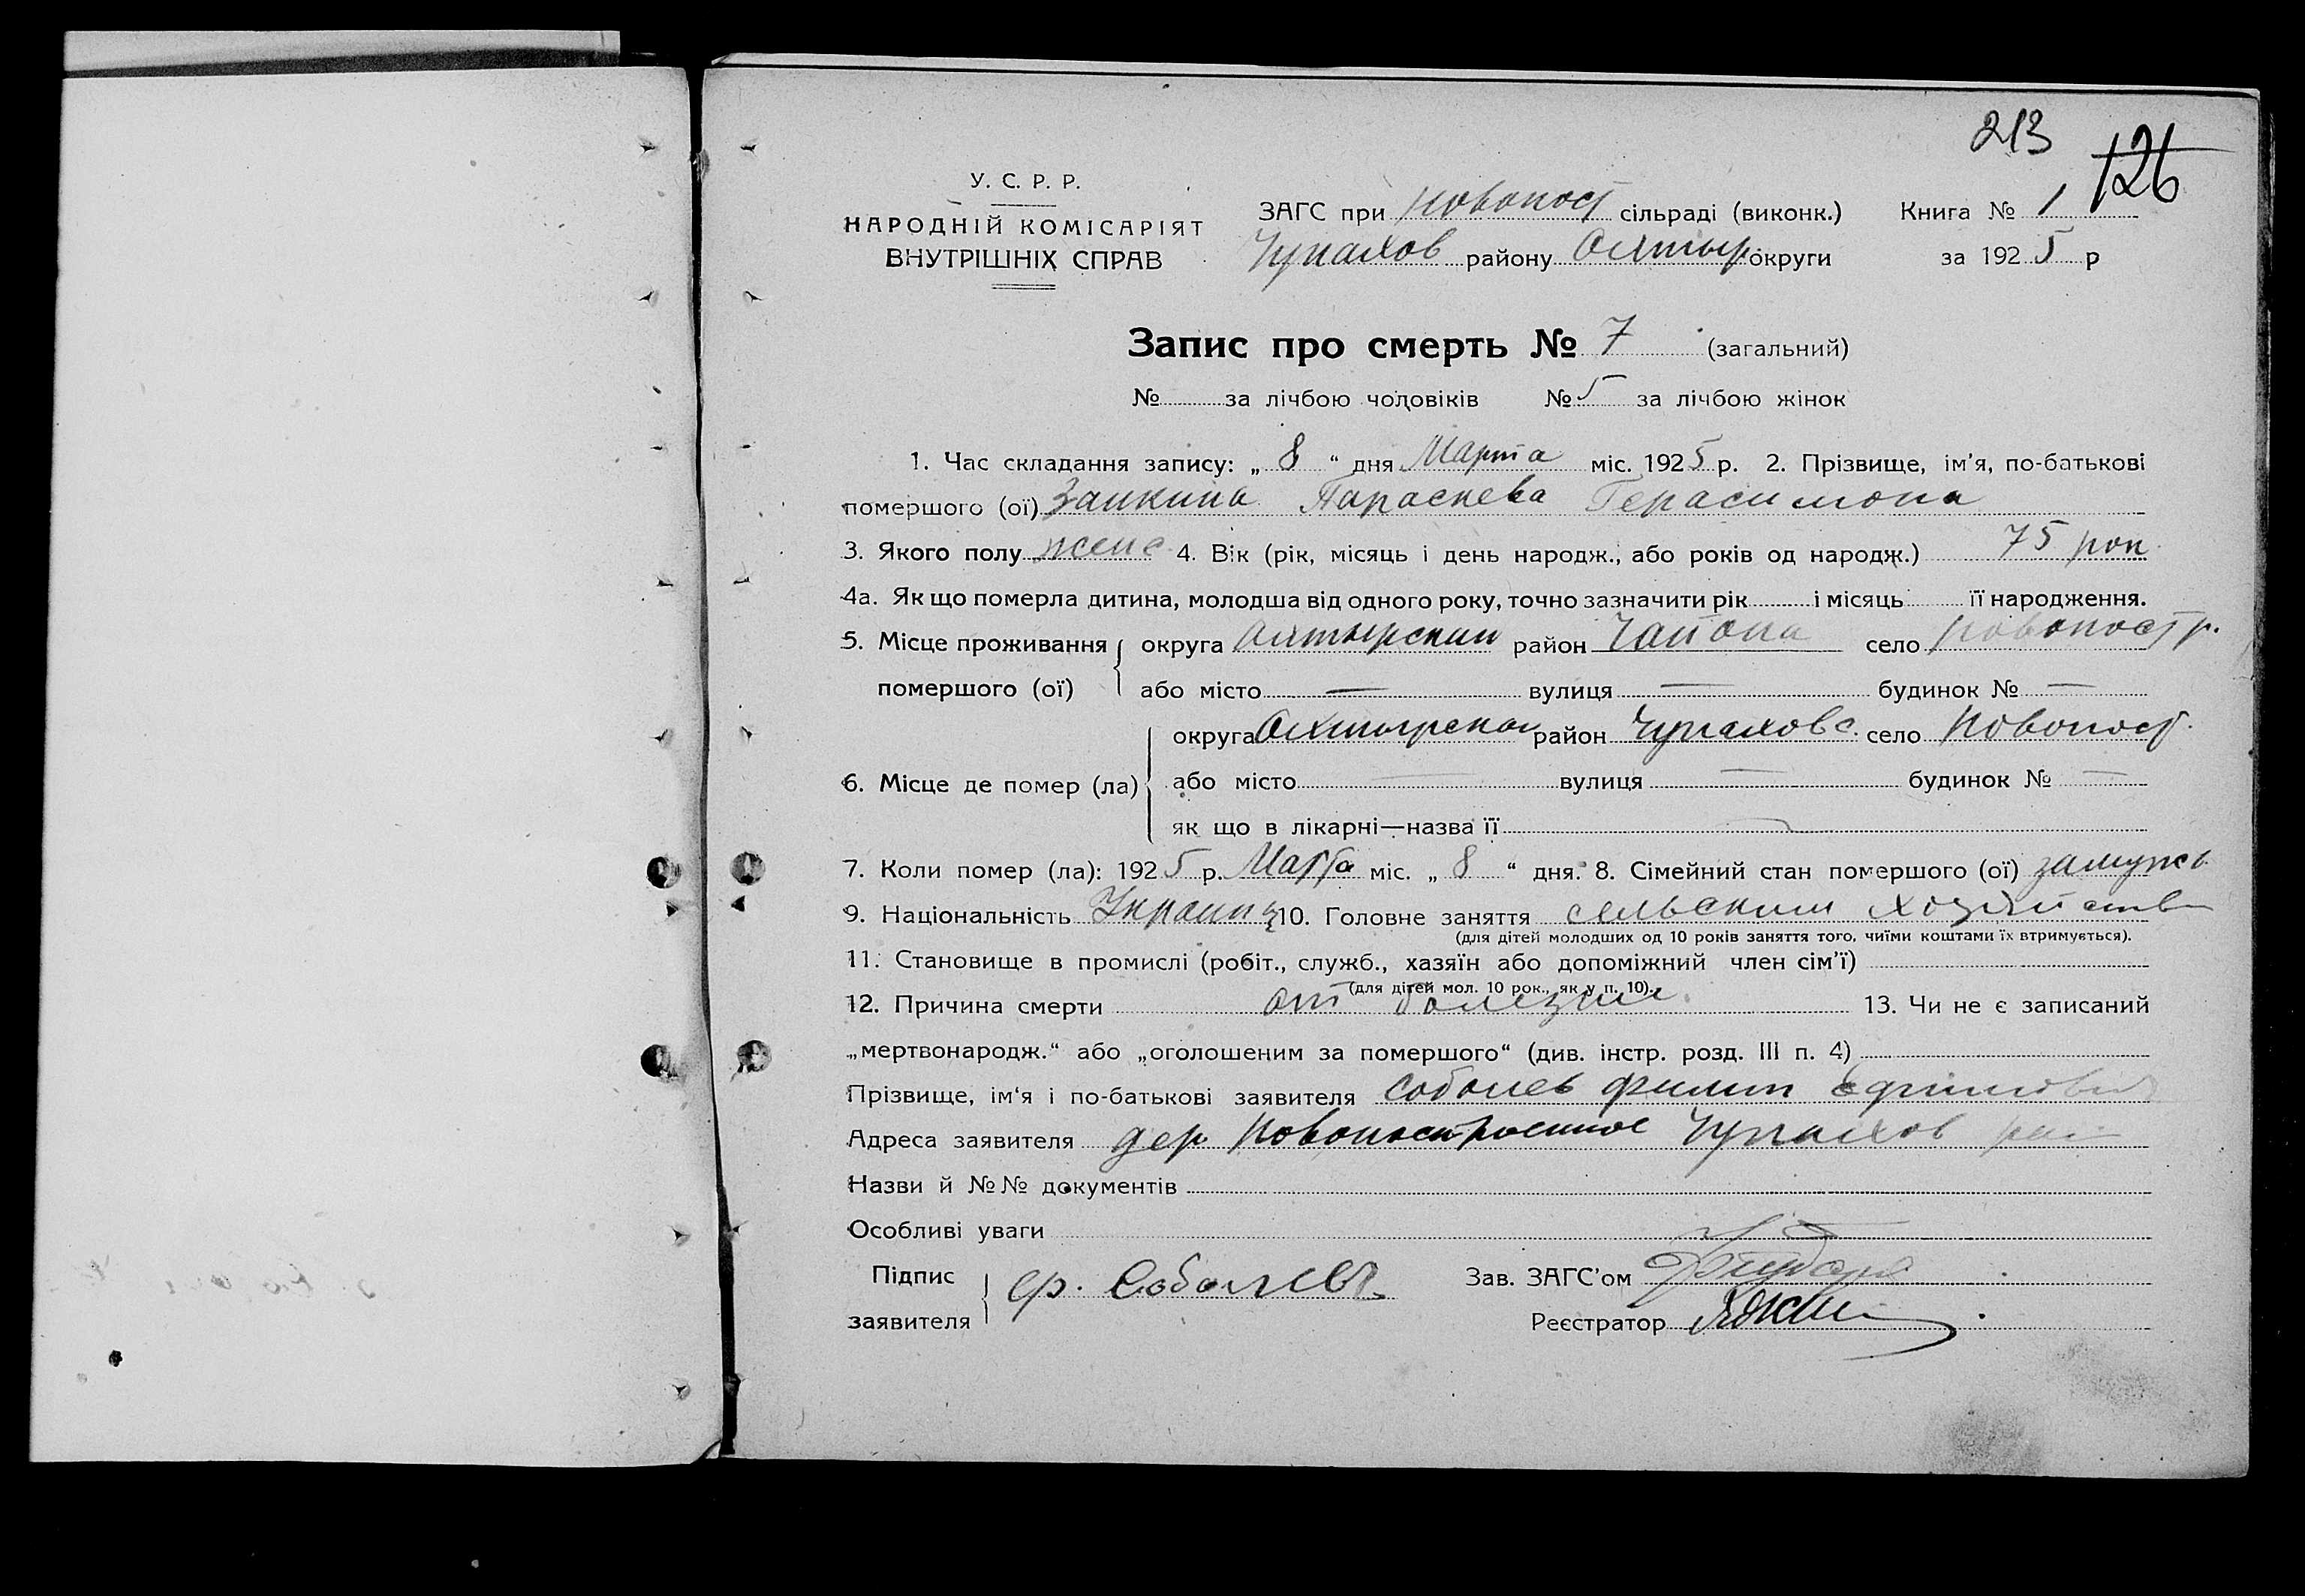 213
126
У. С. Р. Р.
НАРОДНІЙ КОМІСАРІЯТ
ВНУТРІШНІХ СПРАВ
ЗАГС при Новопост сільраді (виконк.) Книга № 1
Чупахов району Ахтыр округи за 1925 р
Запис про смерть № 7 (загальний)
№ за лічбою чоловіків № 5 за лічбою жінок
1. Час складання запису: „ 8 “ дня Марта міс. 1925 р. 2. Прізвище, ім’я, по-батькові
помершого (ої) Заикина Параскева Герасимона
3. Якого полу женс 4. Вік (рік, місяць і день народж., або років од народж.) 75 рок
4а. Як що померла дитина, молодша від одного року, точно зазначити рік і місяць її народження.
5. Місце проживання округа Ахтырскии район село Новопостр.
помершого (ої) або місто — вулиця — будинок № —
округа Ахтырскои район Чупаховс. село Новопост.
6. Місце де помер (ла) або місто — вулиця — будинок № —
як що в лікарні—назва її
7. Коли помер (ла): 1925 р. Марта міс. „ 8 “ дня. 8. Сімейний стан помершого (ої) замужь
9. Національність Украинц 10. Головне заняття сельским хозяйств
(для дітей молодших од 10 років заняття того, чиїми коштами їх втримується).
11. Становище в промислі (робіт., служб., хазяїн або допоміжний член сім’ї)
(для дітей мол. 10 рок., як у п. 10).
12. Причина смерти от болезни 13. Чи не є записаний
„мертвонародж.“ або „оголошеним за помершого“ (див. інстр. розд. III п. 4)
Прізвище, ім‘я і по-батькові заявителя Соболев Филип Ефимович
Адреса заявителя дер Новопостроенное Чупахов рай
Назви й №№ документів
Особливі уваги
Підпис
заявителя ф. Соболевъ
Зав. ЗАГС’ом
Реєстратор